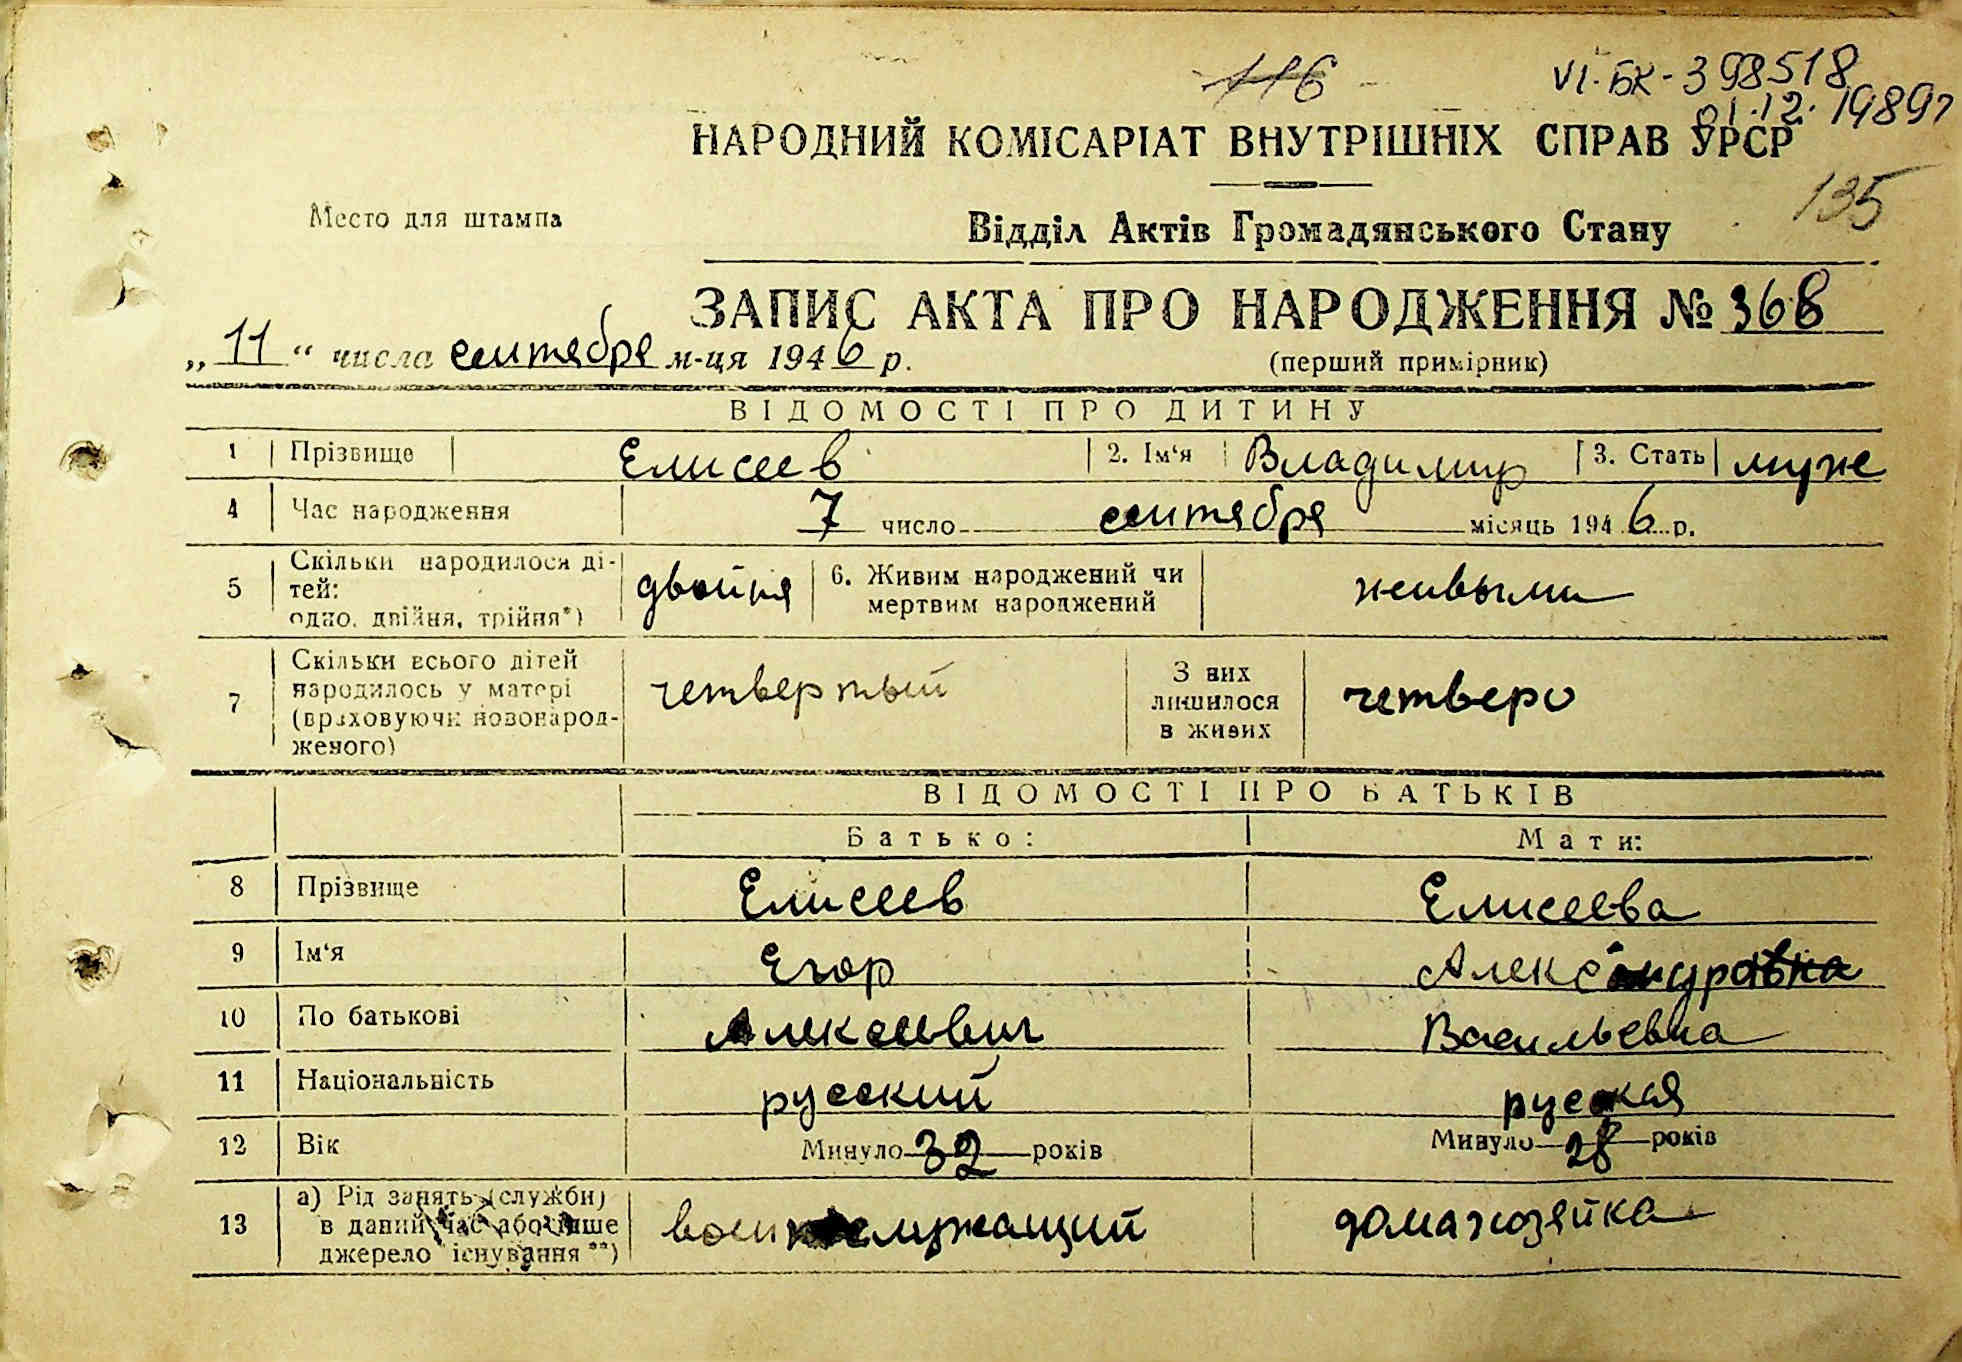 116
VI-БК-398518
01.12.1989г
НАРОДНИЙ КОМІСАРІАТ ВНУТРІШНІХ СПРАВ УРСР
135
Место для штампа
Відділ Актів Громадянського Стану
ЗАПИС АКТА ПРО НАРОДЖЕННЯ № 368
„11“ числа сентября м-ця 1946 р.
(перший примірник)
ВІДОМОСТІ ПРО ДИТИНУ
1 Прізвище Елисеев 2. Ім‘я Владимир 3. Стать муж
4 Час народження 7 число сентября місяць 1946 р.
5 Скільки народилося ді-
тей:
одно, двійня, трійня*) двойня 6. Живим народжений чи
мертвим народжений живыми
7 Скільки всього дітей
народилось у матері
(враховуючи новонарод-
женого) четвертый З них
лишилося
в живих четверо
ВІДОМОСТІ ПРО БАТЬКІВ
Батько: Мати:
8 Прізвище Елисеев Елисеева
9 Ім‘я Егор Александра
10 По батькові Алексеевич Васильевна
11 Національність русский русская
12 Вік Минуло 32 років Минуло 28 років
13 а) Рід занять (служби)
в даний час або інше
джерело існування**) военнослужащий домахозяйка